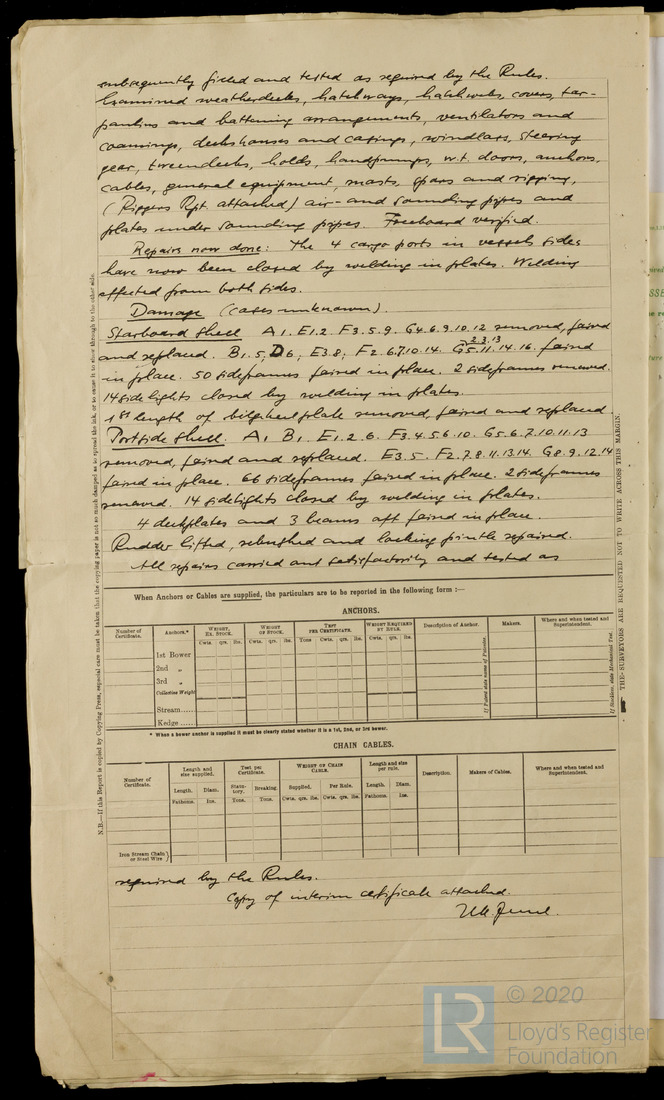 subsequently filled and tested as required by the Rules.
Examined weatherdecks, hatchways, hatchwebs, covers, tar-
paulins and battening arrangements, ventilators and
coamings, deckhouses and casings, windlass, steering
gear, tweendecks, holds, handpumps, w.t. doors, anchors,
cables, general equipment, masts, spars and rigging,
(Riggers Rpt. attached) air- and sounding pipes and
plates under sounding pipes. Freeboard verified.
Repairs now done: The 4 cargo ports in vessels sides
have now been closed by welding in plates. Welding
effected from both sides.
Damage (cases unknown).
Starboard Shell A1. E1.2. F3.5.9. G4.6.9.10.12 removed, faired
2.3.13
and replaced. B1.5; D6; E3.8; F2.6.7.10.14. G5.11.14.16. faired
in place. 50 sideframes faired in place. 2 sideframes renewed.
14 sidelights closed by welding in plates.
1st length of bilgekeel plate removed, faired and replaced.
Portside Shell. A1 B1. E1.2.6. F3.4.5.6.10. G5.6.7.10.11.13
removed, faired and replaced. E3.5. F2.7.8.11.13.14. G8.9.12.14
faired in place. 66 sideframes faired in place. 2 sideframes
renewed. 14 sidelights closed by welding in plates.
4 deckplates and 3 beams aft faired in place.
Rudder lifted, rebushed and locking pintle repaired.
All repairs carried out satisfactorily and tested as
When Anchors or Cables are supplied, the particulars are to be reported in the following form :—
ANCHORS.
Number of Certificate.
Anchors.*
WEIGHT, EX. STOCK.
WEIGHT OF STOCK.
TEST PER CERTIFICATE.
WEIGHT REQUIRED BY RULE.
Description of Anchor.
Makers.
Where and when tested and Superintendent.
Cwts. qrs. lbs.
Cwts. qrs. lbs.
Tons cwts. qrs. lbs.
Cwts. qrs. lbs.
1st Bower
2nd „
3rd „
Collective Weight
Stream......
Kedge ......
If Patent state name of Patentee.
If Stockless, state Mechanical Test.
* When a bower anchor is supplied it must be clearly stated whether it is a 1st, 2nd, or 3rd bower.
CHAIN CABLES.
Number of Certificate.
Length and size supplied.
Test per Certificate.
WEIGHT OF CHAIN CABLE.
Length and size per rule.
Description.
Makers of Cables.
Where and when tested and Superintendent.
Length. Diam. Statutory. Breaking Supplied. Per Rule. Length. Diam.
Fathoms. Ins. Tons. Tons. Cwts. qrs. lbs. Cwts. qrs. lbs. Fathoms. Ins.
Iron Stream Chain
or Steel Wire
required by the Rules.
Copy of interim certificate attached.
N.B.—If this Report is copied by Copying Press, especial care must be taken that the copying paper is not so much damped as to spread the ink, or to cause it to show through to the other side.
THE SURVEYORS ARE REQUESTED NOT TO WRITE ACROSS THIS MARGIN.
LR
© 2020
Lloyd's Register
Foundation